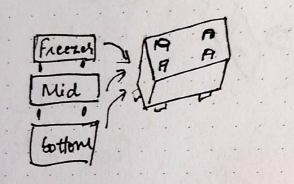 Freezer
Mid
bottom